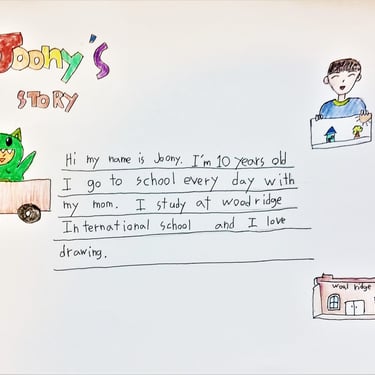 Joony's
STORY
Hi my name is Joony. I'm 10 years old
I go to school every day with
my mom. I study at woodridge
International school and I love
drawing.
wood ridge